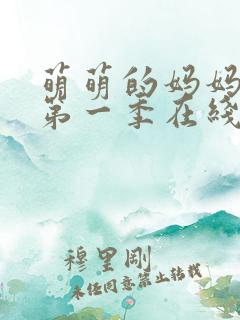 萌萌的妈妈
第一季在线
穆里刚
未经同意禁止转载